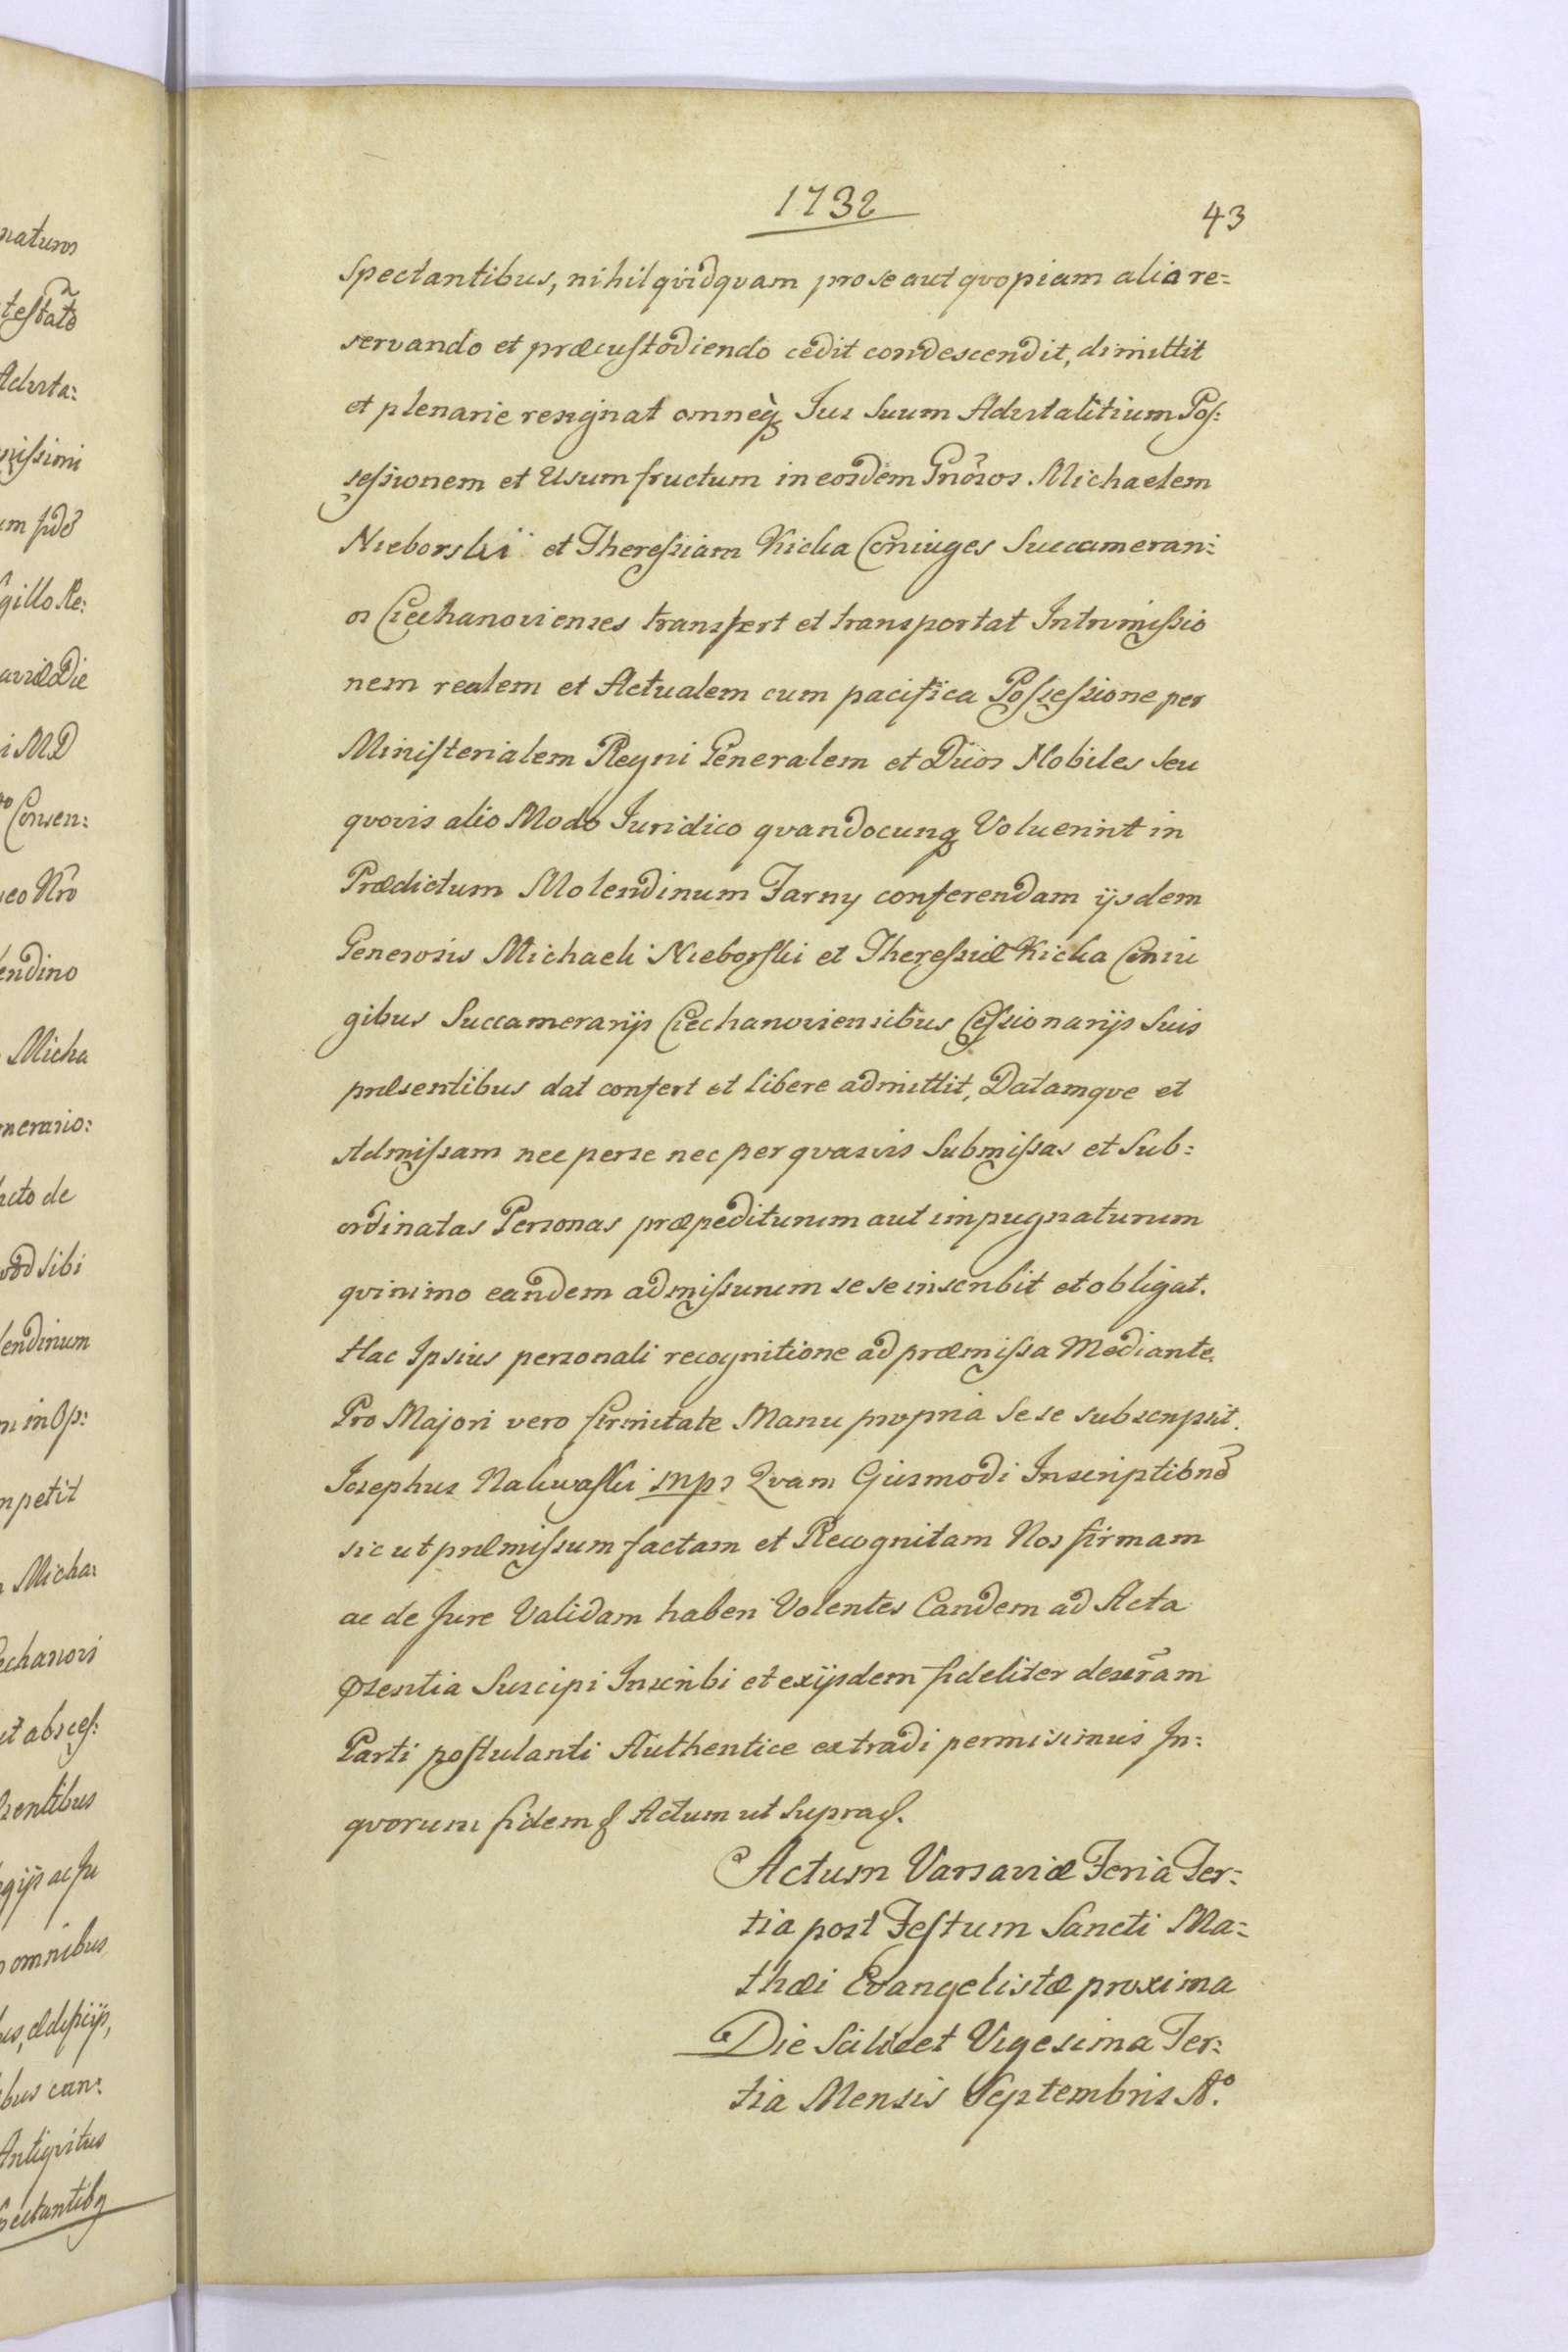 1732
43
spectantibus, nihil qvidqvam pro se aut qvopiam alio re=
servando et præcustodiendo cedit condescendit, dimittit
et plenarie resignat omneq Jus Suum Advitalitium Pos:
sessionem et Usumfructum in eosdem Gnõsos Michaelem
Nieborski et Theressiam Kicka Coniuges Succamerari:
os Ciechanovienses transfert et transportat Intromissio
nem realem et Actualem cum pacifica Possessione per
Ministerialem Regni Generalem et Duos Nobiles seu
qvovis alio Modo Juridico qvandocunq Voluerint in
Prædictum Molendinum Farny conferendam ijsdem
Generosis Michaeli Nieborski et Theressiæ Kicka Coniu
gibus Succamerarijs Ciechanoviensibus Cessionarijs Suis
præsentibus dat confert et libere admittit, Datamqve et
Admissam nec per se nec per qvasvis Submissas et Sub=
ordinatas Personas præpediturum aut impugnaturum
qvinimo eandem admissurum sese inscribit et obligat.
Hac Ipsius personali recognitione ad præmissa Mediante.
Pro Majori vero firmitate Manu propria Sese subscripsit.
Josephus Nakwaski mp Qvam Eiusmodi Inscriptionẽ
sic ut præmissum factam et Recognitam Nos firmam
ac de Jure Validam haberi Volentes Eandem ad Acta
præsentia Suscipi Inscribi et ex ijsdem fideliter descrãm
Parti postulanti Authentice extradi permisimus In=
qvorum fidem & Actum ut Supra &.
Actum Varsaviæ Feria Ter=
tia post Festum Sancti Ma=
thæi Evangelistæ proxima
Die Scilicet Vigesima Ter=
tia Mensis Septembris Aº.
naturos
testatõ
Advita:
nissimi
um fidẽ
gillo Re:
aviæ Die
i MD
Consen:
eo Nro
endino
Micha
merario:
acto de
vod sibi
lendinum
in Op:
mpetit
Micha:
echanovi
ut absces:
sentibus
gijs ac Ju
omnibus
us, ædificijs,
bus
Antiqvitus
spectantibq